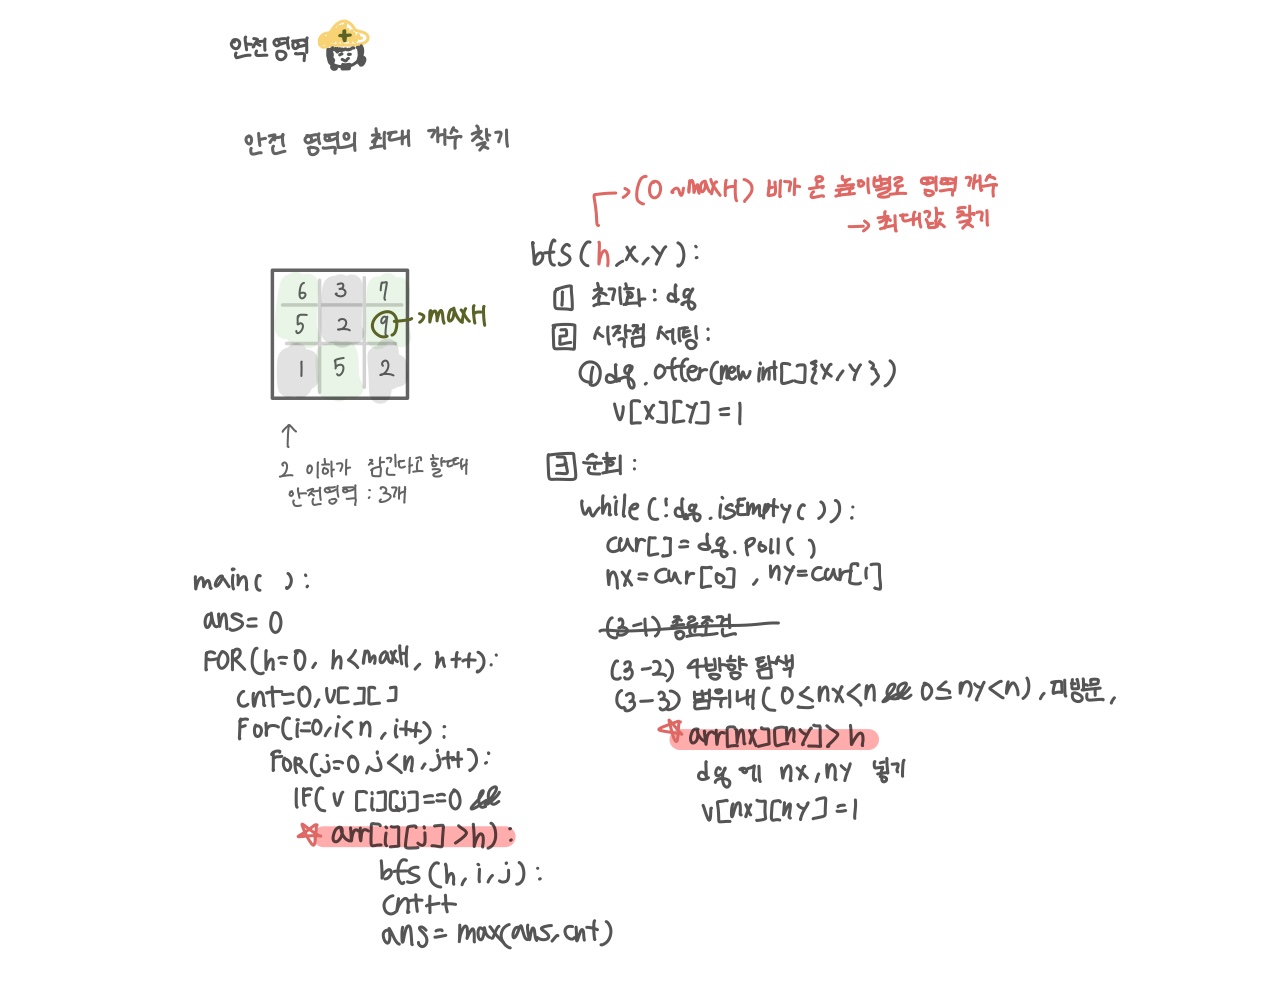 안전 영역
안전 영역의 최대 개수 찾기
→(0 ~maxH) 비가 온 높이별로 영역 개수
→ 최대값 찾기
bfs(h,x,y):
1 초기화: dq
2 시작점 세팅:
① dq.offer(new int[]{x,y})
v[x][y]=1
3 순회:
while(!dq.isEmpty()):
cur[]=dq.poll()
nx=cur[0], ny=cur[1]
(3-1) 종료조건
(3-2) 4방향 탐색
(3-3) 범위내(0≤nx<n && 0≤ny<n), 미방문,
☆ arr[nx][ny]>h
dq에 nx,ny 넣기
v[nx][ny]=1
6 3 7
5 2 9→maxH
1 5 2
↑
2 이하가 잠긴다고 할때
안전영역: 3개
main( ):
ans=0
FOR(h=0, h<maxH, h++):
cnt=0, v[][]
For(i=0,i<n,i++):
FOR(j=0,j<n,j++):
IF(v[i][j]==0 &&
☆ arr[i][j]>h):
bfs(h,i,j):
cnt++
ans=max(ans,cnt)